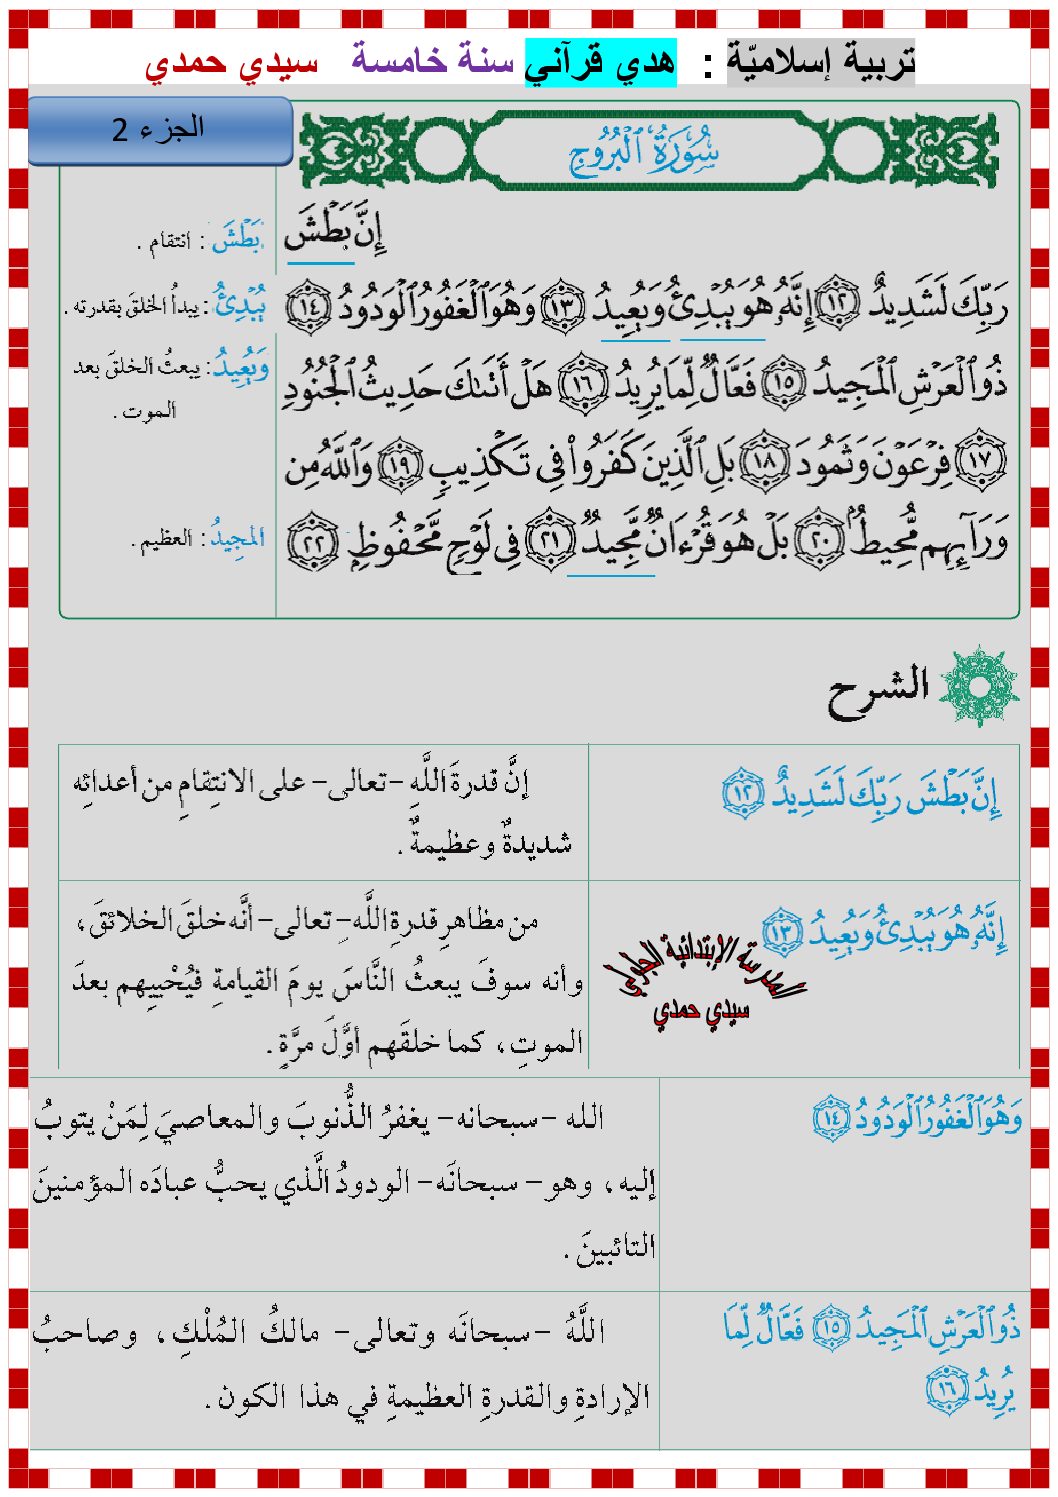 تربية إسلاميّة : هدي قرآني سنة خامسة سيدي حمدي
الجزء 2
سُورَةُ الْبُرُوجِ
إِنَّ بَطْشَ
رَبِّكَ لَشَدِيدٌ ١٢ إِنَّهُۥ هُوَ يُبْدِئُ وَيُعِيدُ ١٣ وَهُوَ ٱلْغَفُورُ ٱلْوَدُودُ ١٤
ذُو ٱلْعَرْشِ ٱلْمَجِيدُ ١٥ فَعَّالٌ لِّمَا يُرِيدُ ١٦ هَلْ أَتَىٰكَ حَدِيثُ ٱلْجُنُودِ
١٧ فِرْعَوْنَ وَثَمُودَ ١٨ بَلِ ٱلَّذِينَ كَفَرُوا۟ فِى تَكْذِيبٍ ١٩ وَٱللَّهُ مِن
وَرَآئِهِم مُّحِيطٌ ٢٠ بَلْ هُوَ قُرْءَانٌ مَّجِيدٌ ٢١ فِى لَوْحٍ مَّحْفُوظٍ ٢٢
بَطْشَ : انتقام .
يُبْدِئُ : يبدأُ الخلقَ بقدرته .
وَيُعِيدُ : يبعثُ الخلقَ بعد
الموت .
المَجِيدُ : العظيم .
الشرح
إِنَّ بَطْشَ رَبِّكَ لَشَدِيدٌ ١٢
إنَّ قدرةَ اللَّهِ -تعالى- على الانتِقامِ من أعدائِه
شديدةٌ وعظيمةٌ .
إِنَّهُۥ هُوَ يُبْدِئُ وَيُعِيدُ ١٣
من مظاهرِ قدرةِ اللَّهِ -تعالى- أنَّه خلقَ الخلائقَ ،
وأنه سوفَ يبعثُ النَّاسَ يومَ القيامةِ فيُحْييِهم بعدَ
الموتِ ، كما خلقَهم أوَّلَ مرَّةٍ .
المدرسة الإبتدائية الجوابي
سيدي حمدي
وَهُوَ ٱلْغَفُورُ ٱلْوَدُودُ ١٤
الله -سبحانه- يغفرُ الذُّنوبَ والمعاصيَ لِمَنْ يتوبُ
إليه ، وهو - سبحانَه- الودودُ الَّذي يحبُّ عبادَه المؤمنينَ
التائبينَ .
ذُو ٱلْعَرْشِ ٱلْمَجِيدُ ١٥ فَعَّالٌ لِّمَا
يُرِيدُ ١٦
اللَّهُ -سبحانَه وتعالى- مالكُ المُلْكِ ، وصاحبُ
الإرادةِ والقدرةِ العظيمةِ في هذا الكون .